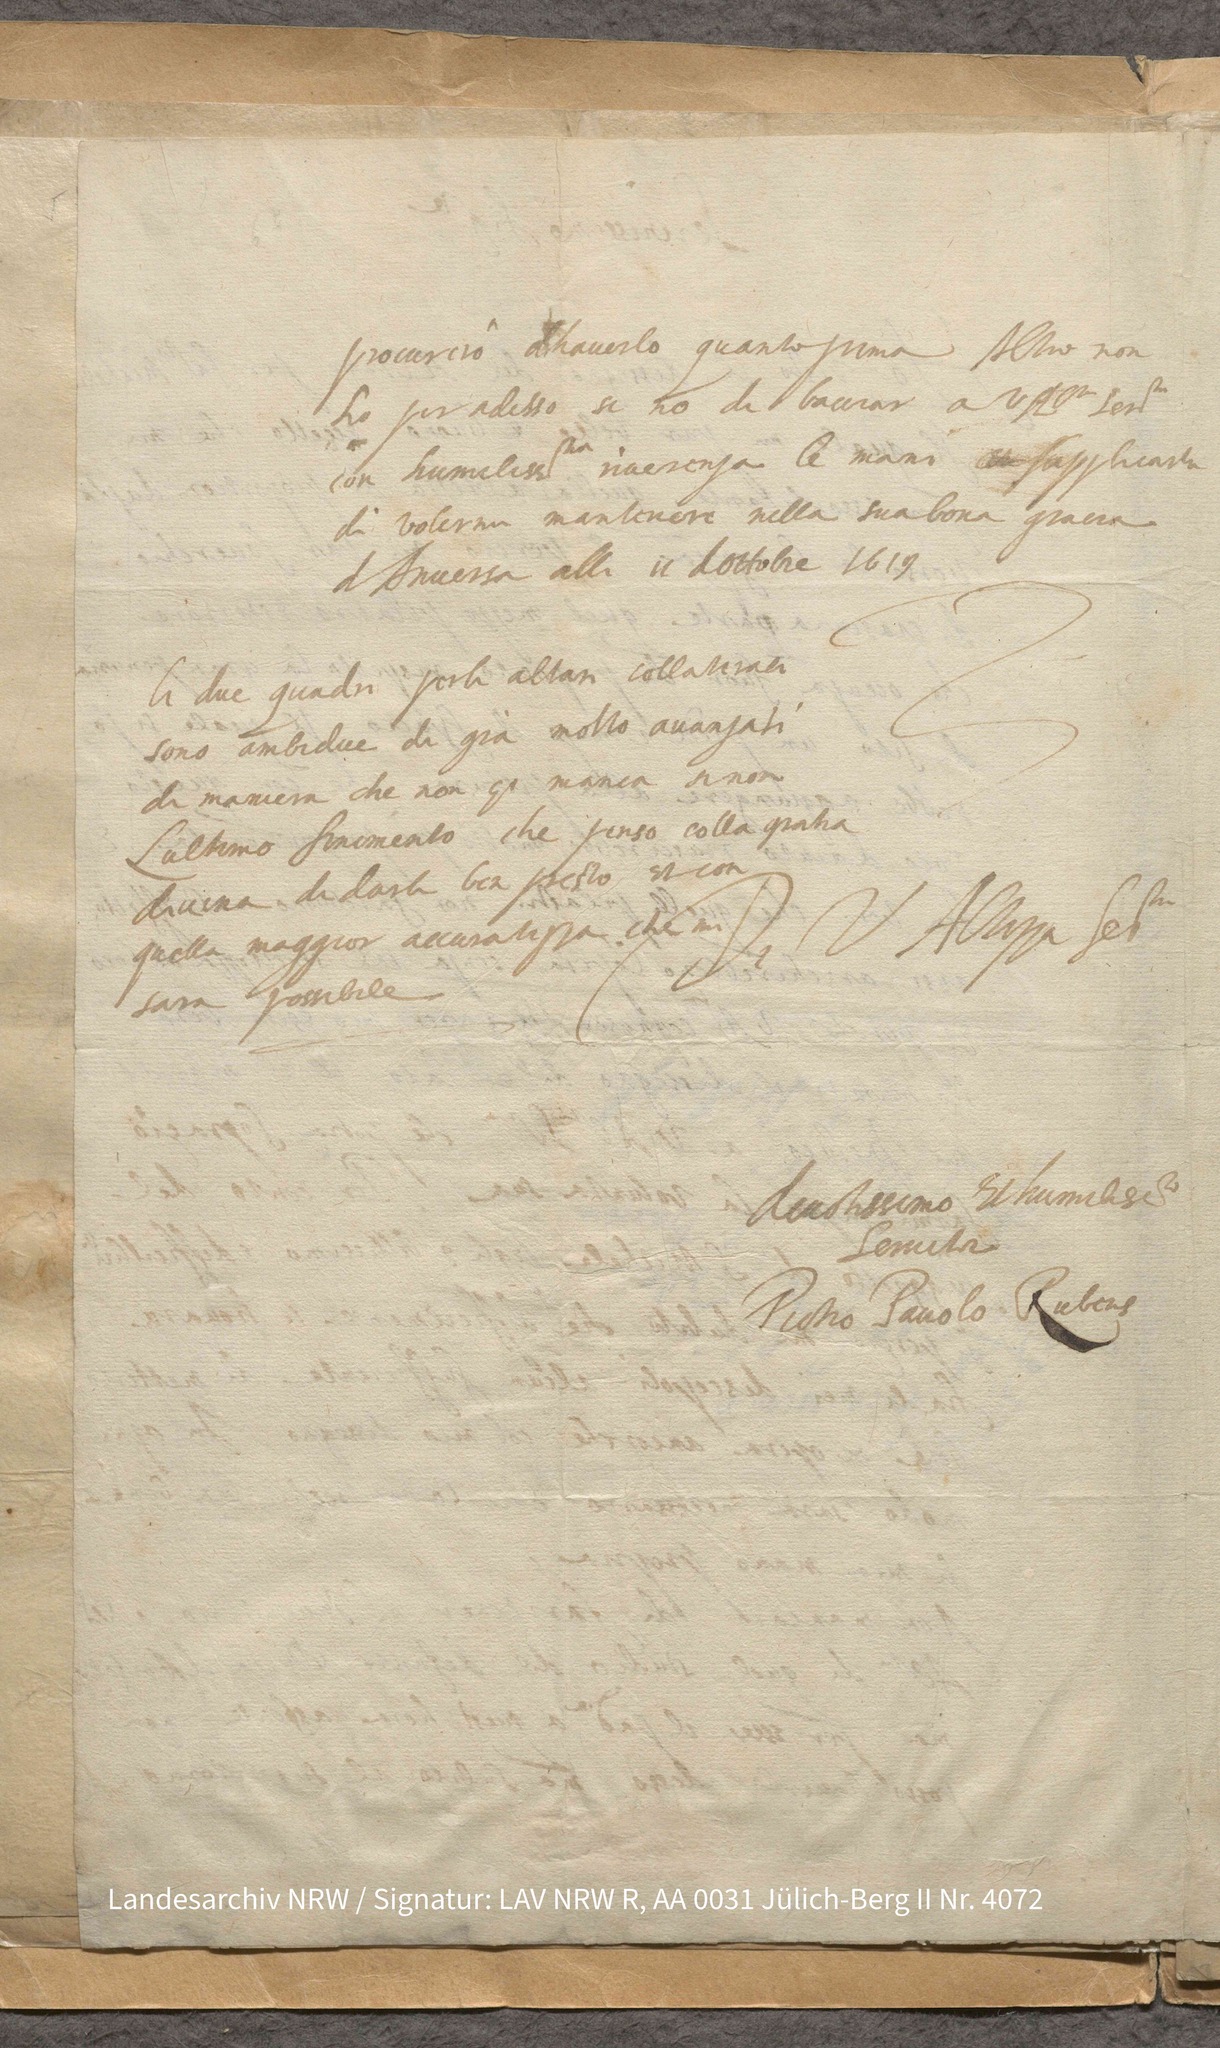 procurerò d'hauerlo quanto prima Altro non
ho per adesso se no di baciar a V Altza Serma
con humilissma riuerenza le mani supplicarla
di volermi mantenere nella sua bona gracia
d'Anuersa alli 11 d'ottobre 1619
li due quadri per li altari collaterali
sono ambidue di già molto auanzati
di maniera che non gi manca se non
L'ultimo finimento che penso colla gratia
diuina di darli ben presto et con
quella maggior accuratezza che mi
sara possibile
Di V Altezza Serma
deuotissimo et humilissmo
Seruitor
Pietro Pauolo Rubens
Landesarchiv NRW / Signatur: LAV NRW R, AA 0031 Jülich-Berg II Nr. 4072